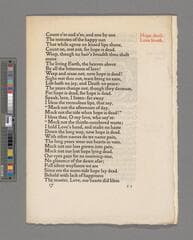 Count o'er and o'er, and one by one
The minutes of the happy sun
That while agone on kissed lips shone,
Count on, rest not, for hope is dead.
Weep, though no hair's breadth thou shalt
move
The living Earth, the heaven above
By all the bitterness of love!
Weep and cease not, now hope is dead!
Sighs rest thee not, tears bring no ease,
Life hath no joy, and Death no peace:
The years change not, though they decrease,
For hope is dead, for hope is dead.
Speak, love, I listen: far away
I bless the tremulous lips, that say,
"Mock not the afternoon of day,
Mock not the tide when hope is dead!"
I bless thee, O my love, who say'st:
"Mock not the thistle-cumbered waste;
I hold Love's hand, and make no haste
Down the long way, now hope is dead.
With other names do we name pain,
The long years wear our hearts in vain.
Mock not our loss grown into gain,
Mock not our lost hope lying dead.
Our eyes gaze for no morning-star,
No glimmer of the dawn afar;
Full silent wayfarers we are
Since ere the noon-tide hope lay dead.
Behold with lack of happiness
The master, Love, our hearts did bless
Hope dieth:
Love liveth.